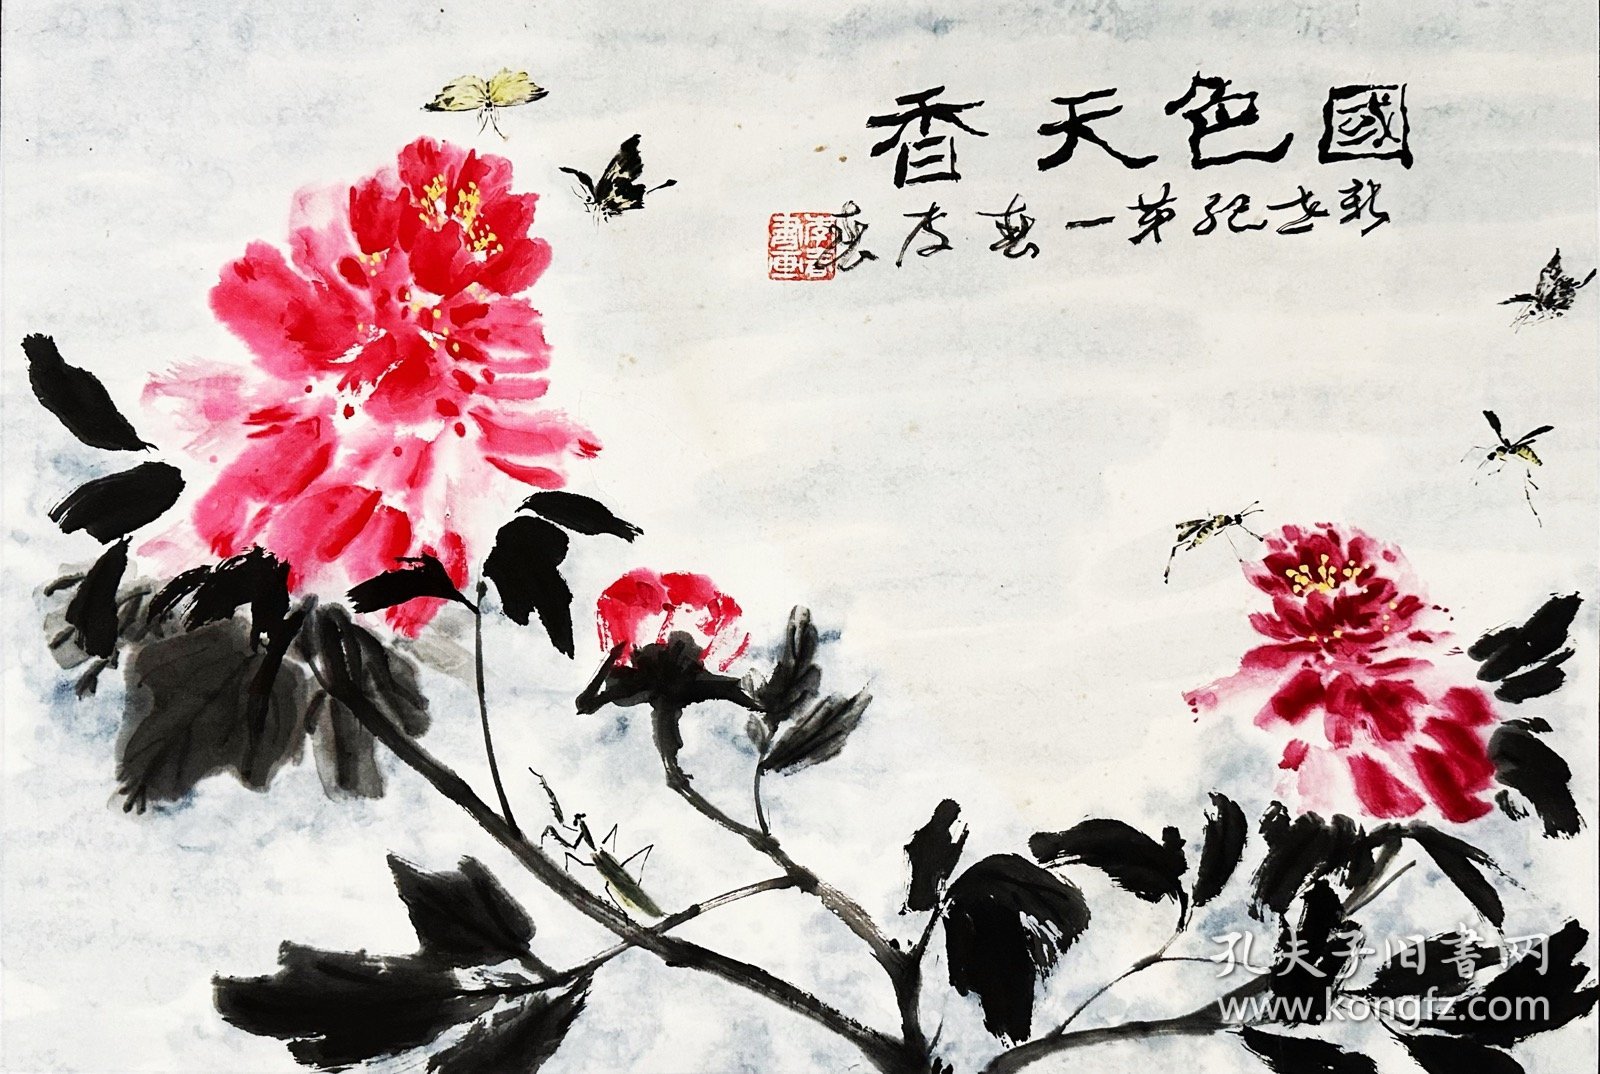 國色天香
新世紀第一春
孔夫子旧書网
www.kongfz.com